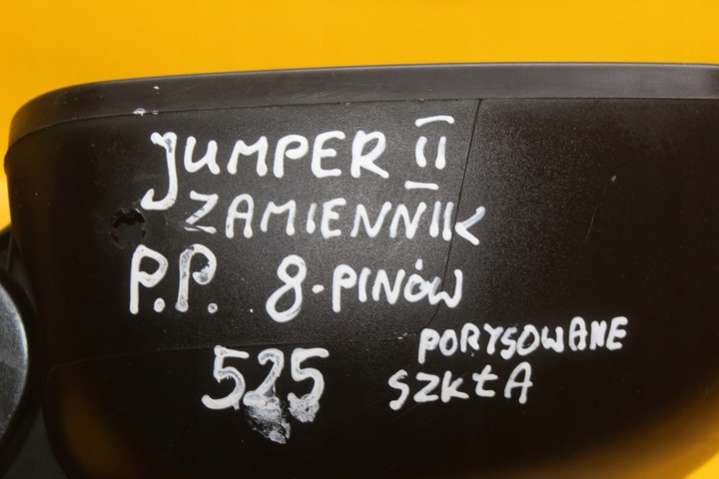 JUMPER II
ZAMIENNIK
P.P. 8-PINÓW
525
PORYSOWANE
SZKŁA